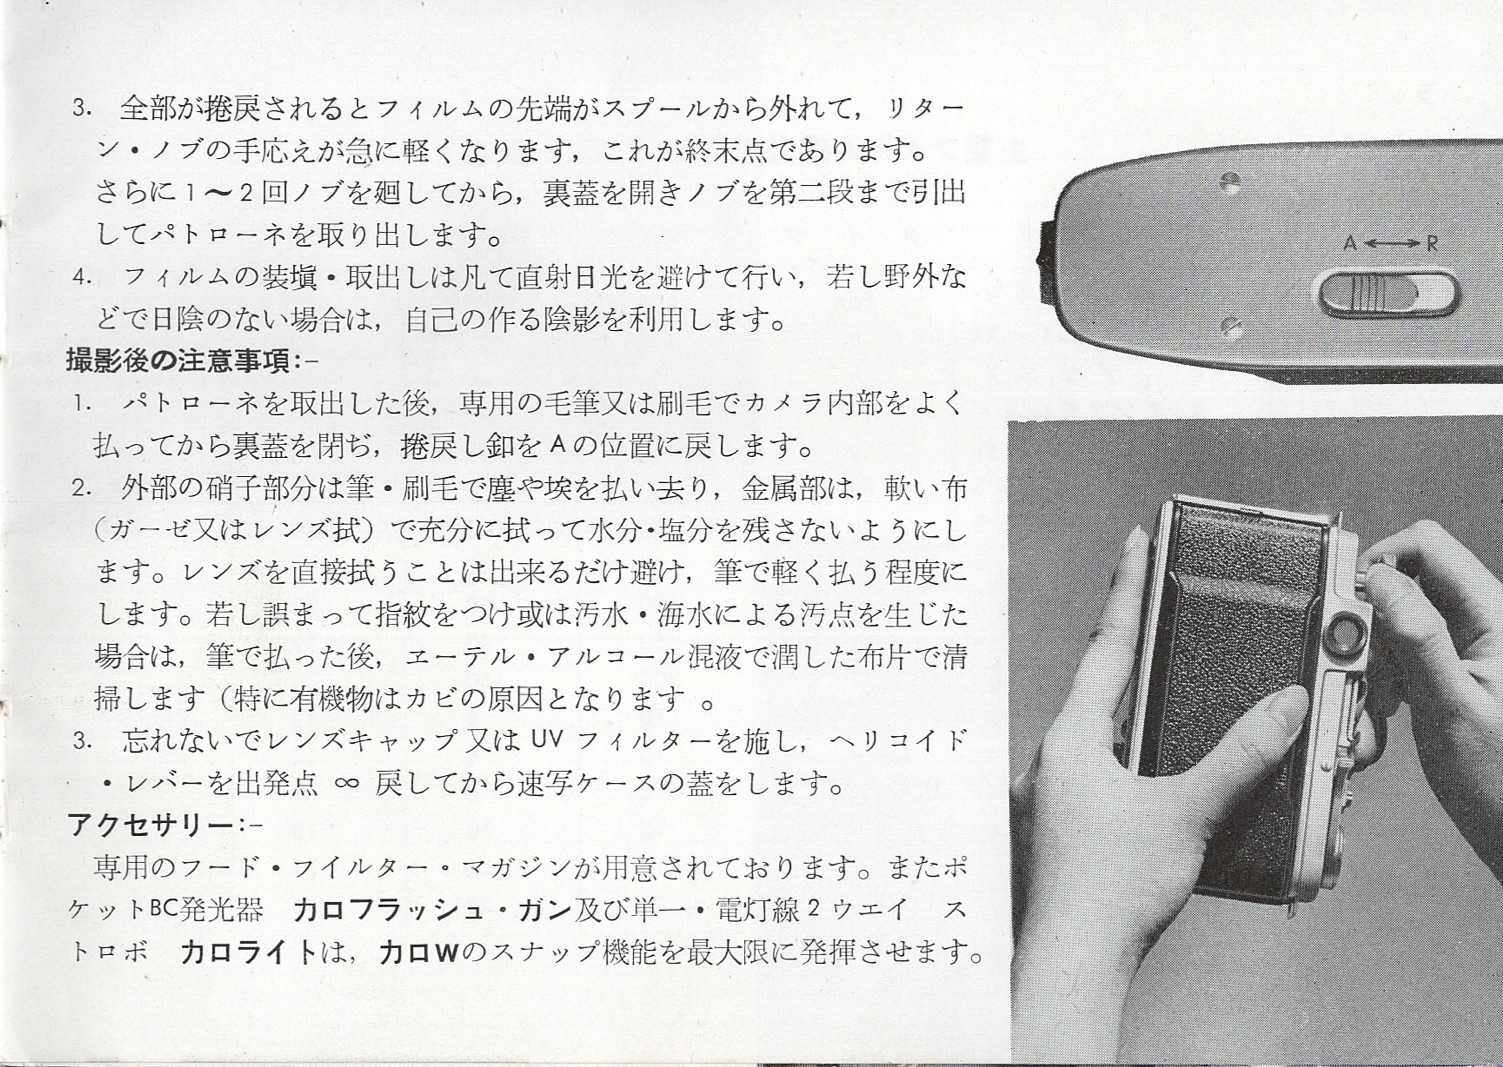 3. 全部が捲戻されるとフィルムの先端がスプールから外れて，リター
ン・ノブの手応えが急に軽くなります，これが終末点であります。
さらに1〜2回ノブを廻してから，裏蓋を開きノブを第二段まで引出
してパトローネを取り出します。
4. フィルムの装塡・取出しは凡て直射日光を避けて行い，若し野外な
どで日陰のない場合は，自己の作る陰影を利用します。
撮影後の注意事項:−
1. パトローネを取出した後，専用の毛筆又は刷毛でカメラ内部をよく
払ってから裏蓋を閉ぢ，捲戻し釦を A の位置に戻します。
2. 外部の硝子部分は筆・刷毛で塵や埃を払い去り，金属部は，軟い布
（ガーゼ又はレンズ拭）で充分に拭って水分・塩分を残さないようにし
ます。レンズを直接拭うことは出来るだけ避け，筆で軽く払う程度に
します。若し誤まって指紋をつけ或は汚水・海水による汚点を生じた
場合は，筆で払った後，エーテル・アルコール混液で潤した布片で清
掃します（特に有機物はカビの原因となります 。
3. 忘れないでレンズキャップ又は UV フィルターを施し，ヘリコイド
・レバーを出発点 ∞ 戻してから速写ケースの蓋をします。
アクセサリー:−
専用のフード・フイルター・マガジンが用意されております。またポ
ケットBC発光器 カロフラッシュ・ガン及び単一・電灯線2ウエイ ス
トロボ カロライトは，カロWのスナップ機能を最大限に発揮させます。
A ⟷ R